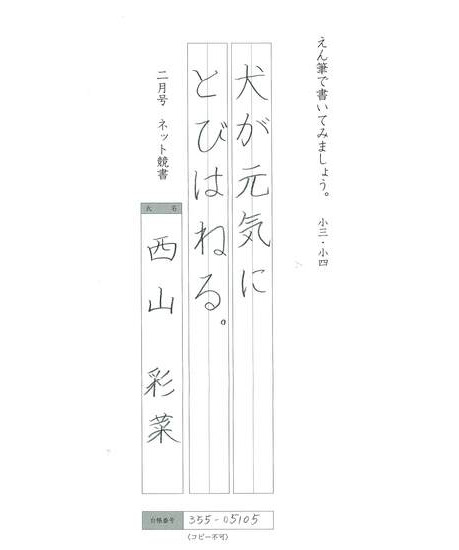 えん筆で書いてみましょう。 小三・小四
犬が元気に
とびはねる。
二月号 ネット競書
氏名
西山 彩菜
台帳番号 355-05105
(コピー不可)